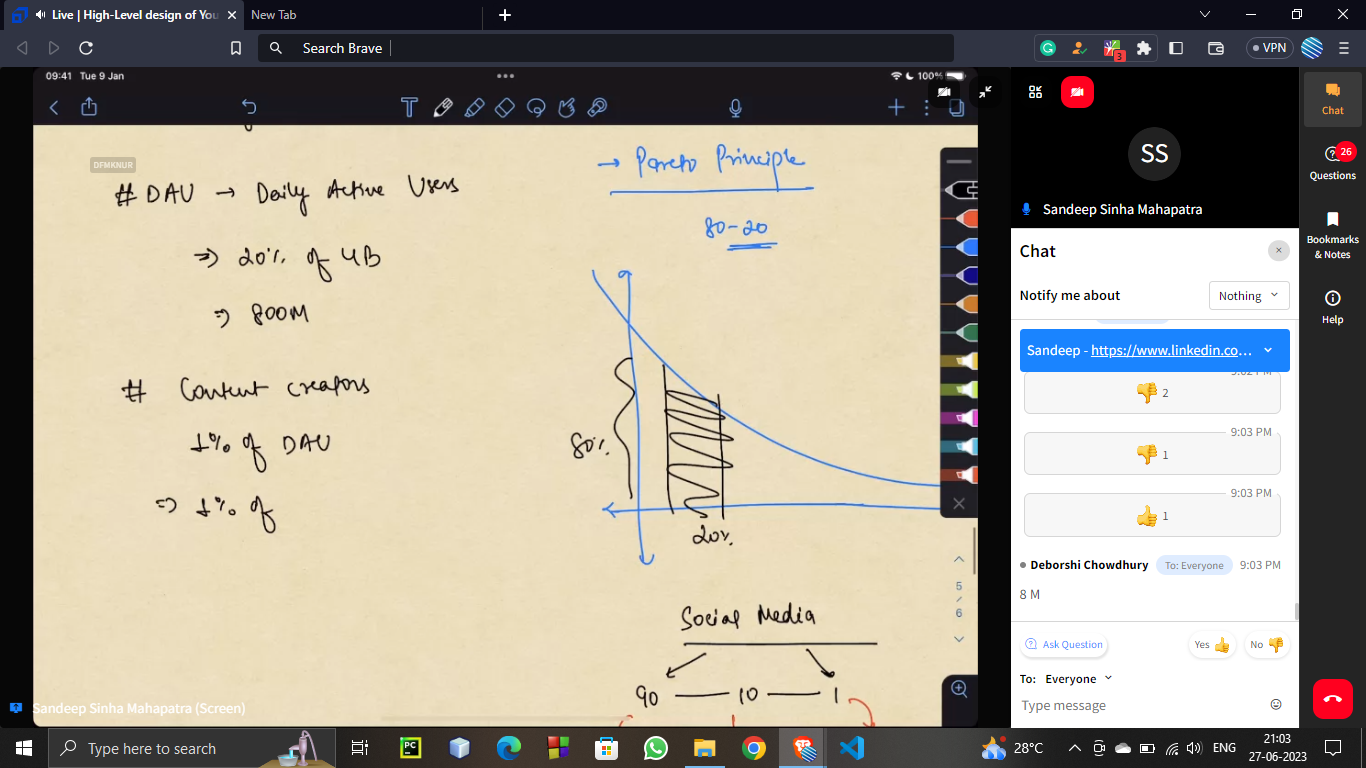 Live | High-Level design of You
New Tab
Search Brave
3
VPN
09:41 Tue 9 Jan
100%
DFMKNUR
# DAU → Daily Active Users
⇒ 20% of 4B
⇒ 800M
# Content creators
1% of DAU
⇒ 1% of
→ Pareto Principle
80-20
80%
20%
Social Media
90 — 10 — 1
5
/
6
Sandeep Sinha Mahapatra (Screen)
SS
Sandeep Sinha Mahapatra
Chat
Notify me about
Nothing
Sandeep - https://www.linkedin.co...
9:02 PM
👎 2
9:03 PM
👎 1
9:03 PM
👍 1
Deborshi Chowdhury To: Everyone 9:03 PM
8 M
Ask Question
Yes 👍
No 👎
To: Everyone
Type message
Chat
26
Questions
Bookmarks
& Notes
Help
Type here to search
PC
28°C
ENG
21:03
27-06-2023